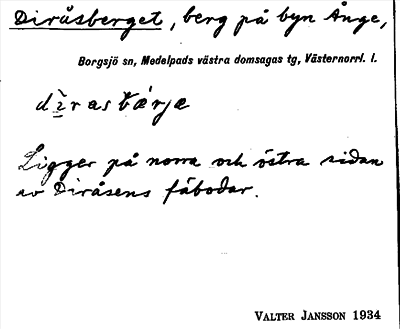 Diråsberget, berg på byn Ånge,
Borgsjö sn, Medelpads västra domsagas tg, Västernorrl. l.
Ligger på norra och östra sidan
av Diråsens fäbodar.
VALTER JANSSON 1934